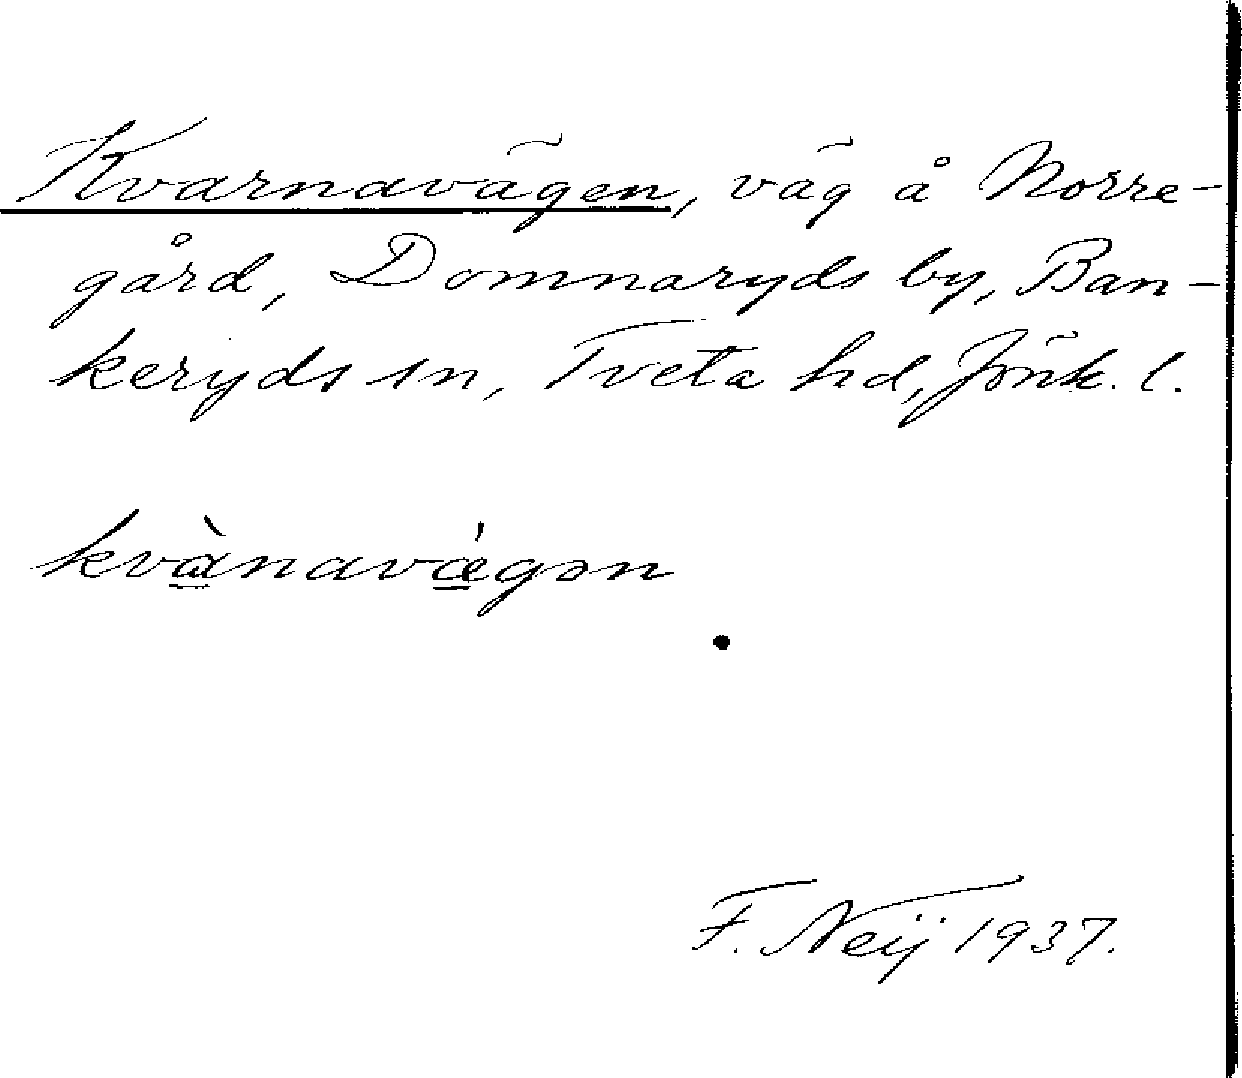 Kvarnavägen, väg å Norre-
gård, Domnaryds by, Ban-
keryds sn, Tveta hd, Jönk. l.
kvànavǽgən
F. Neij 1937.